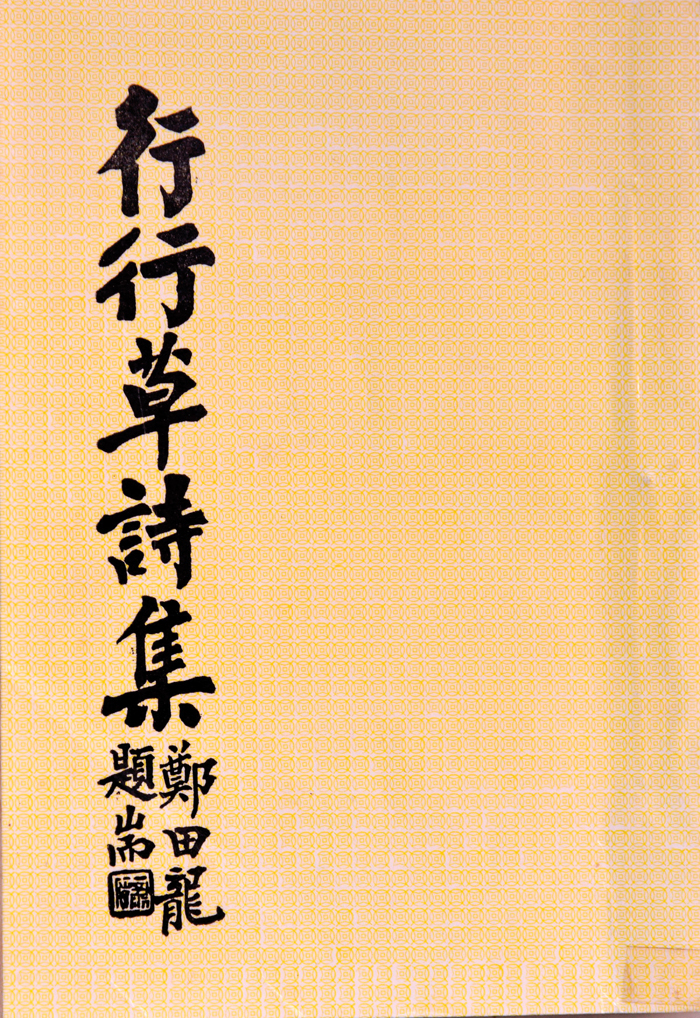 行行草詩集
鄭田龍
題耑